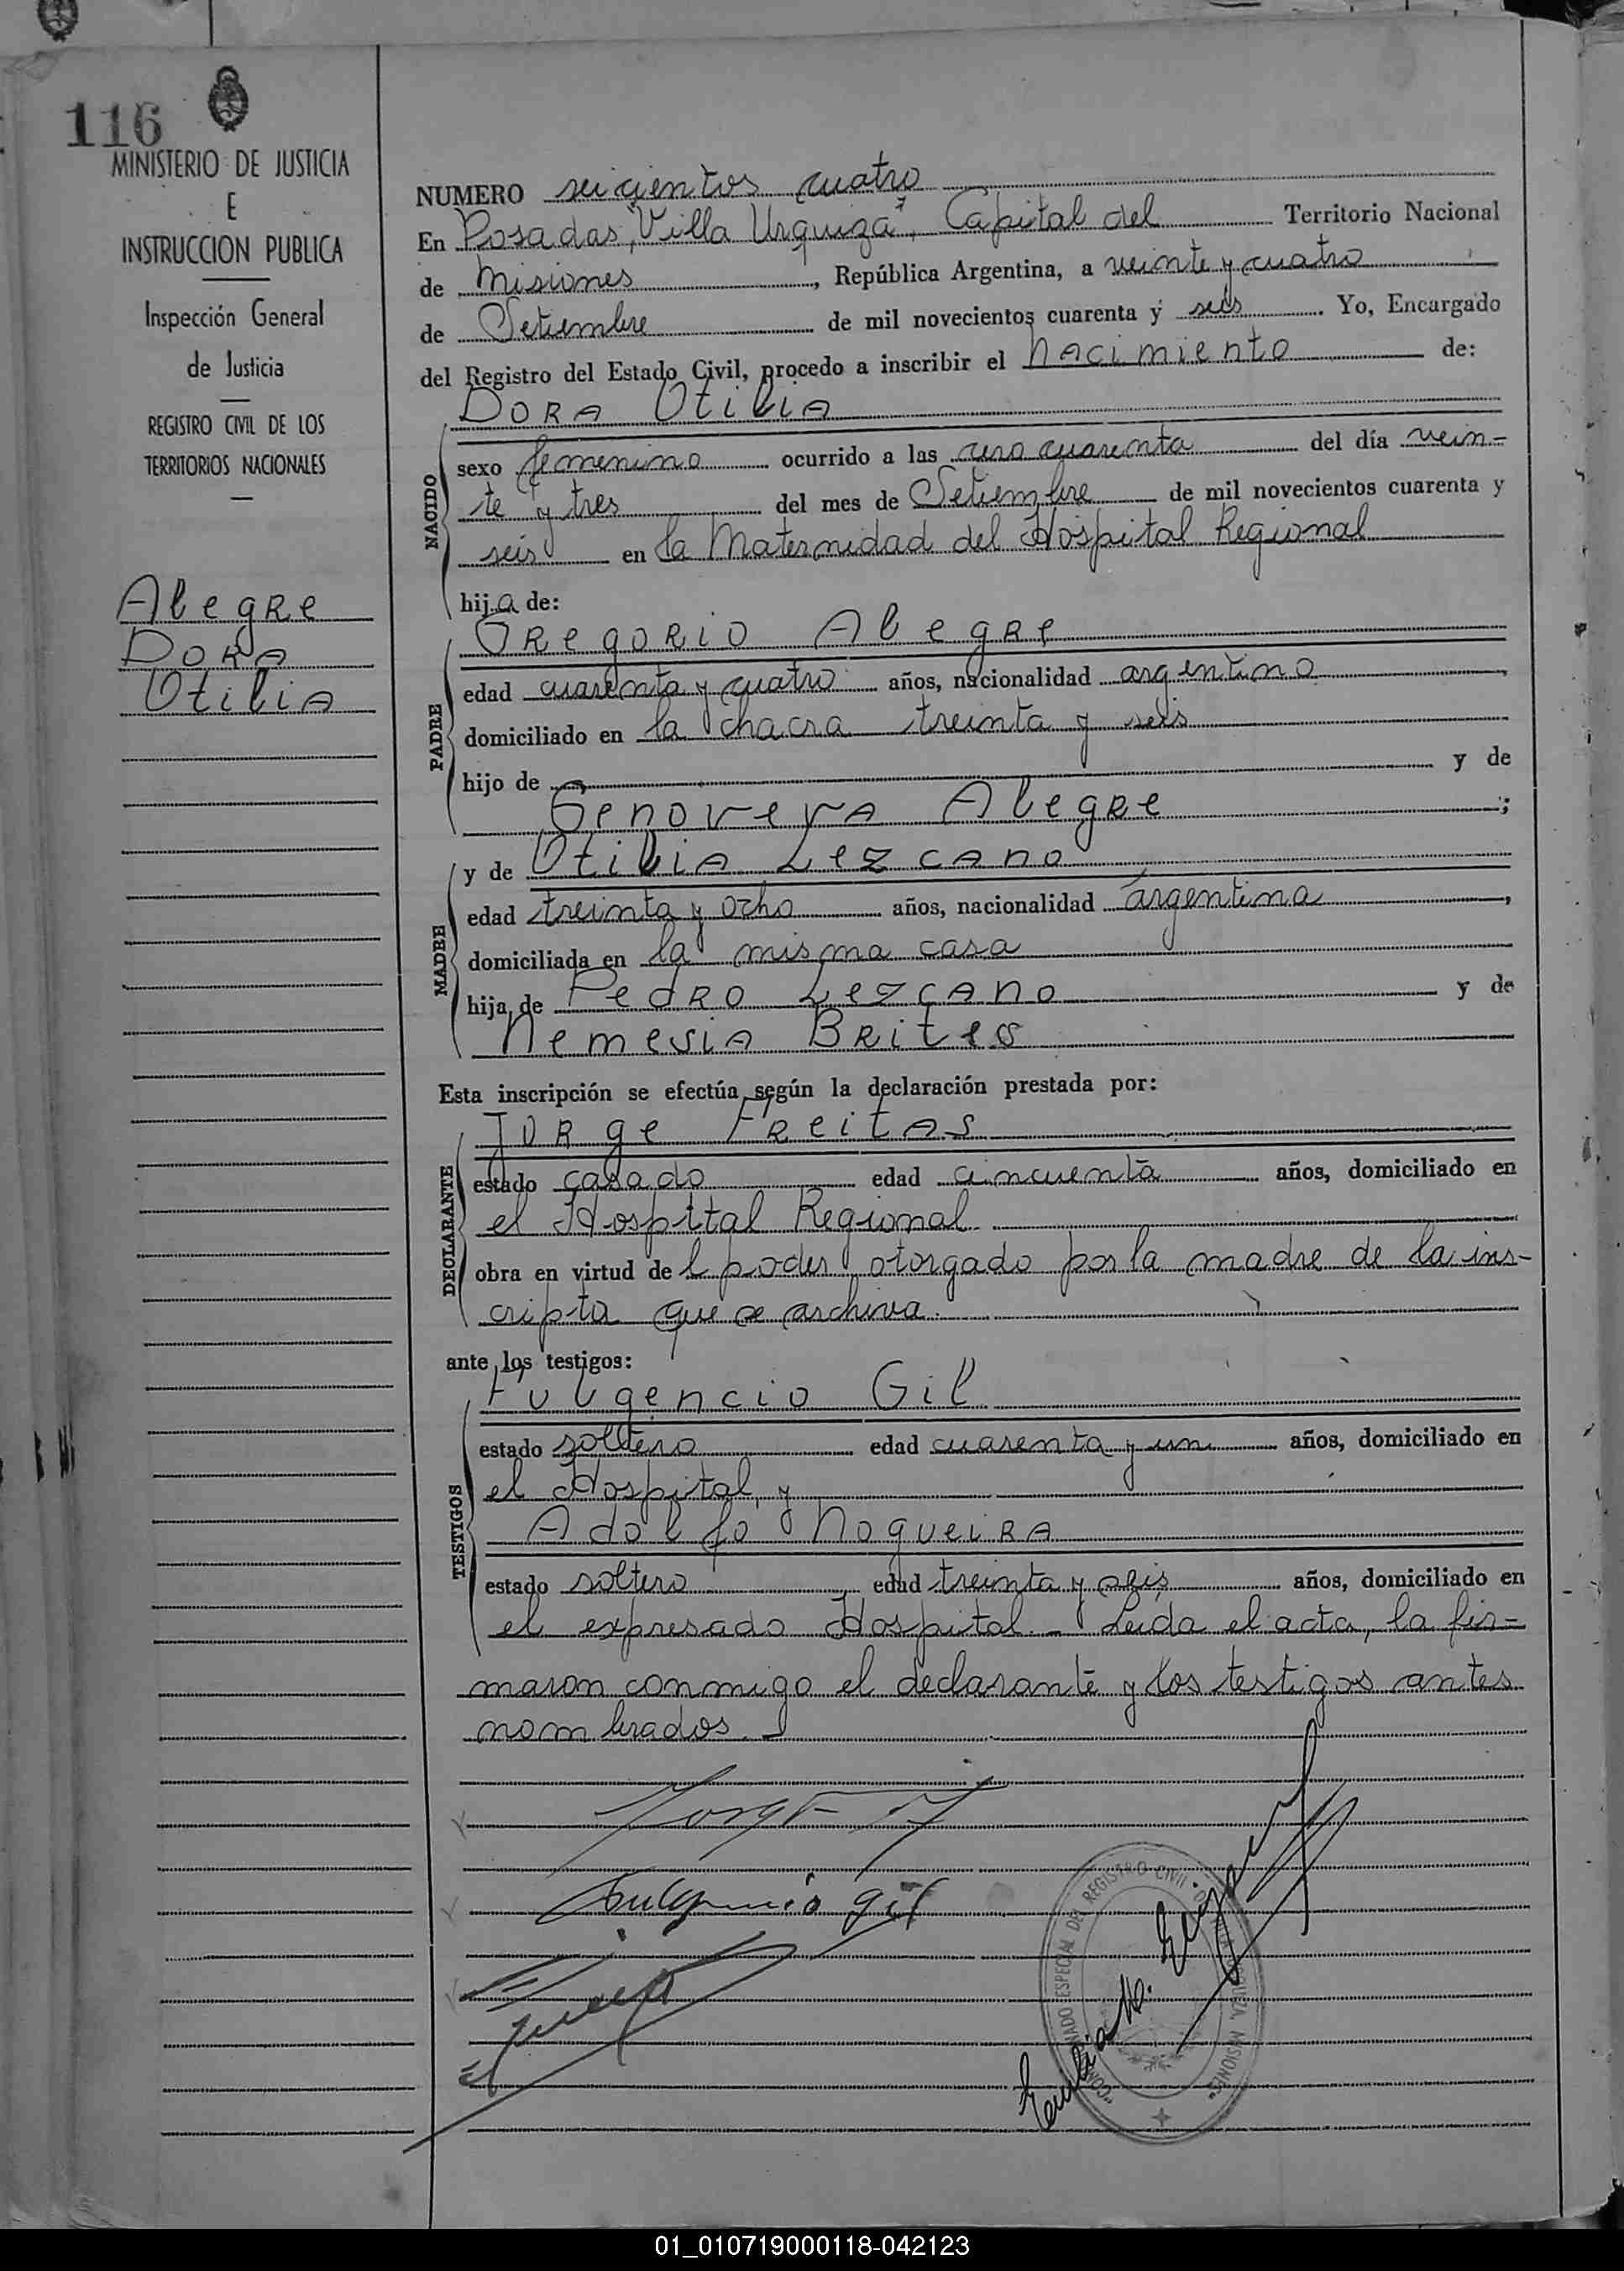 116
MINISTERIO DE JUSTICIA
E
INSTRUCCION PUBLICA
Inspección General
de Justicia
REGISTRO CIVIL DE LOS
TERRITORIOS NACIONALES
Alegre
Dora
Otilia
NUMERO seicientos cuatro
En Posadas, "Villa Urquiza", Capital del Territorio Nacional
de Misiones, República Argentina, a veinte y cuatro
de Setiembre de mil novecientos cuarenta y seis. Yo, Encargado
del Registro del Estado Civil, procedo a inscribir el nacimiento de:
DORA OtiliA
NACIDO
sexo femenino ocurrido a las cero cuarenta del día vein-
te y tres del mes de Setiembre de mil novecientos cuarenta y
seis en la Maternidad del Hospital Regional
hija de:
PADRE
GREGORIO Alegre
edad cuarenta y cuatro años, nacionalidad argentino,
domiciliado en la chacra treinta y seis
hijo de y de
Genoveva Alegre;
MADRE
y de Otilia Lezcano
edad treinta y ocho años, nacionalidad argentina,
domiciliada en la misma casa
hija de Pedro Lezcano y de
Nemesia Brites
Esta inscripción se efectúa según la declaración prestada por:
DECLARANTE
Jorge Freitas
estado casado edad cincuenta años, domiciliado en
el Hospital Regional
obra en virtud del poder otorgado por la madre de la ins-
cripta que se archiva.
ante los testigos:
TESTIGOS
Fulgencio Gil
estado soltero edad cuarenta y un años, domiciliado en
el Hospital, y
Adolfo Nogueira
estado soltero edad treinta y seis años, domiciliado en
el expresado Hospital.- Leida el acta, la fir-
maron conmigo el declarante y los testigos antes
nombrados.-
Fulgencio Gil
REGISTRO CIVIL
ESPECIAL DEL
MISIONES
01_010719000118-042123